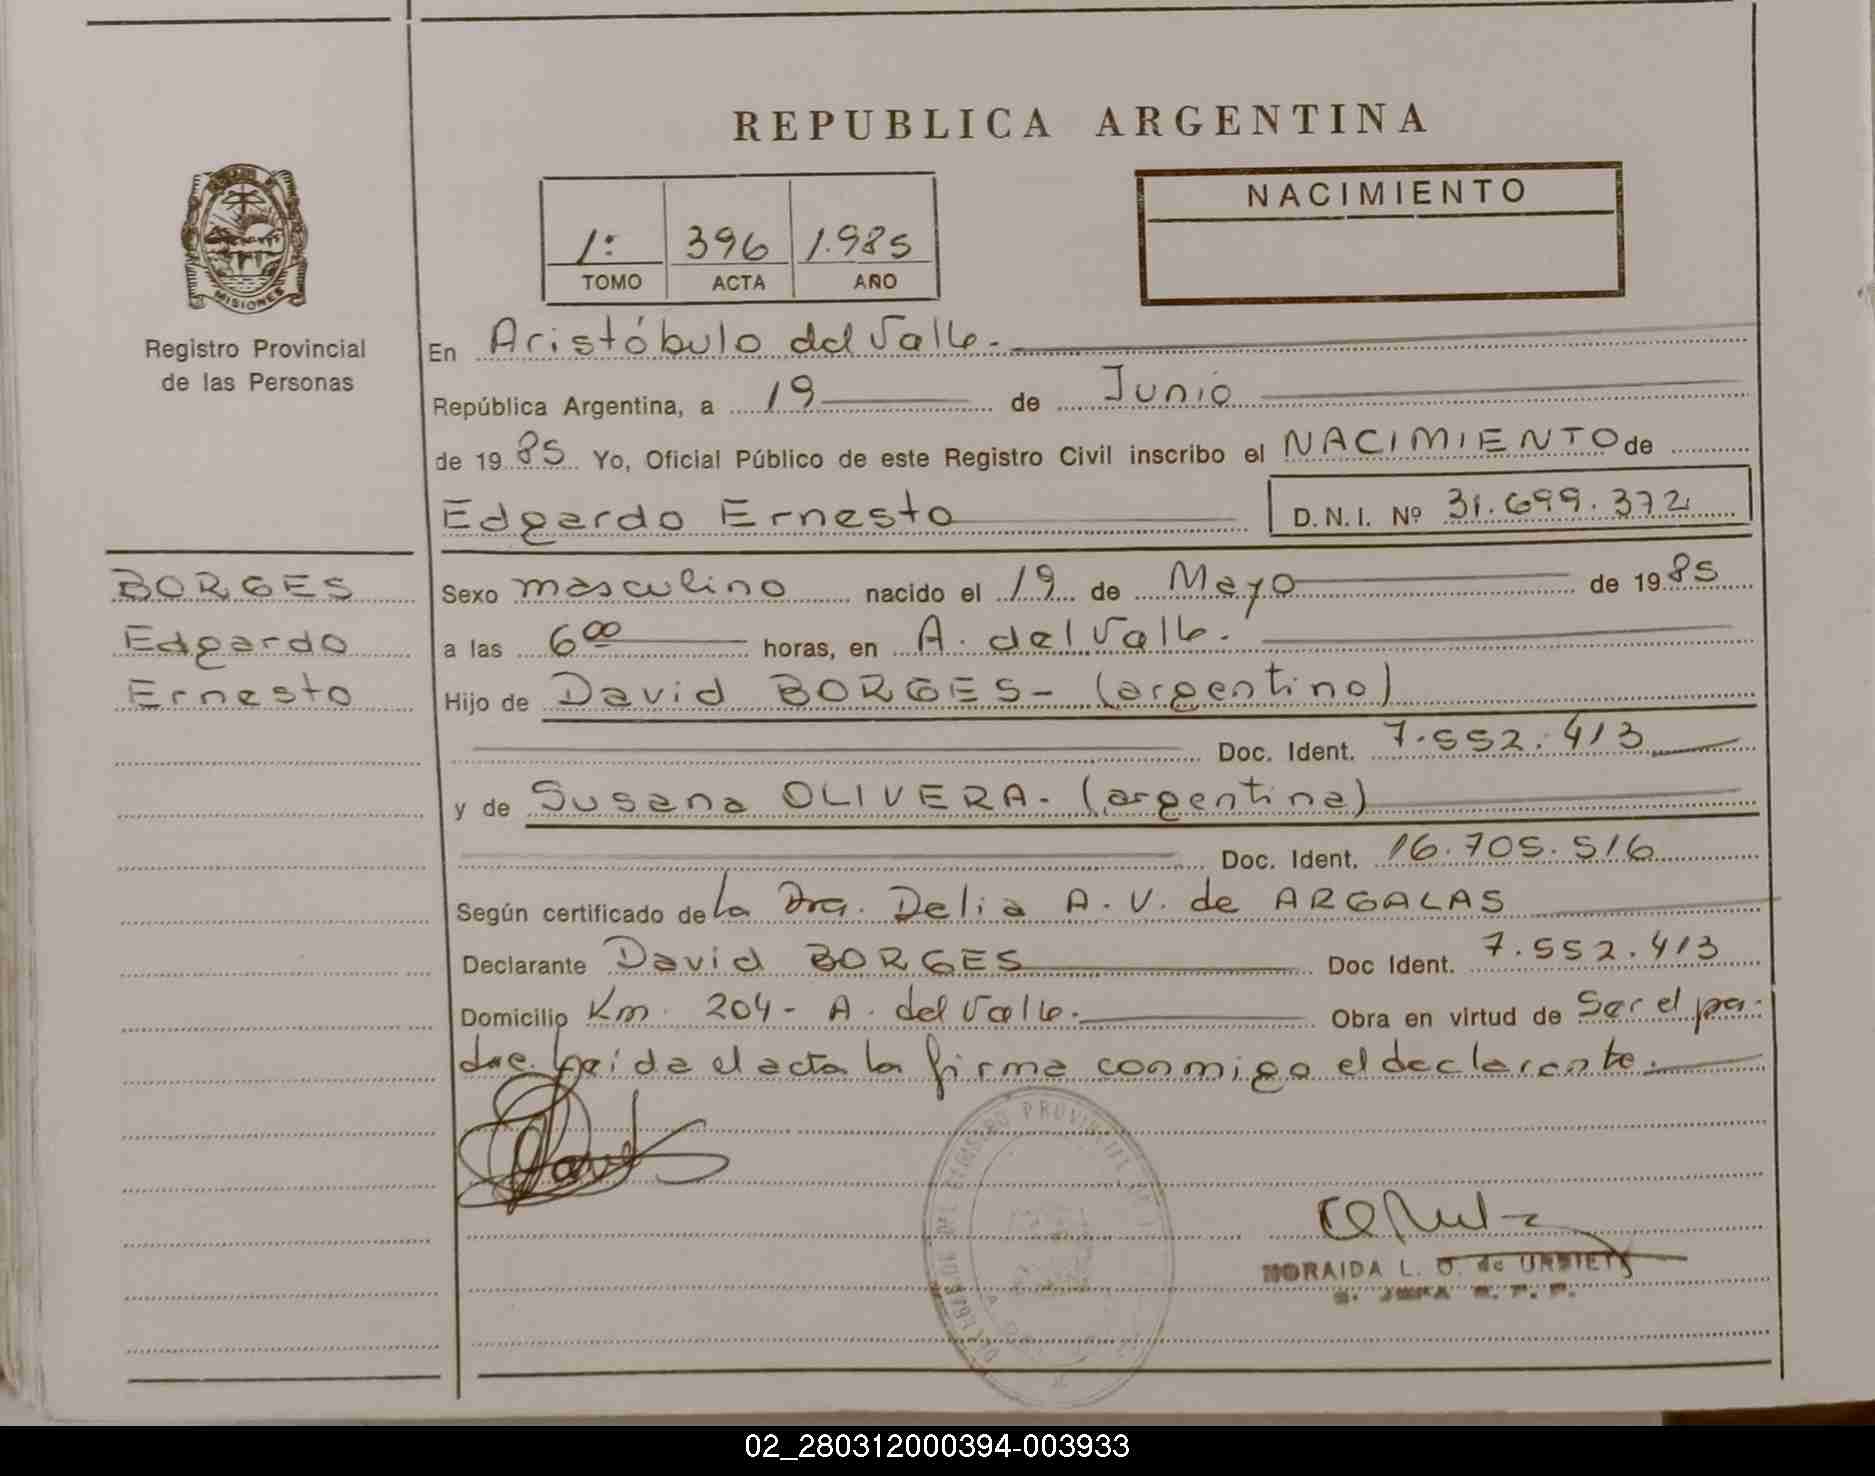 REPUBLICA ARGENTINA
NACIMIENTO
1: 396 1.985
TOMO ACTA AÑO
MISIONES
Registro Provincial
de las Personas
En Aristóbulo del Valle.-
República Argentina, a 19 de Junio
de 1985 Yo, Oficial Público de este Registro Civil inscribo el NACIMIENTO de
Edgardo Ernesto D.N.I. Nº 31.699.372
BORGES
Edgardo
Ernesto
Sexo masculino nacido el 19 de Mayo de 1985
a las 6 00 horas, en A. del Valle.
Hijo de David BORGES- (argentino)
Doc. Ident. 7.552.413
y de Susana OLIVERA.- (argentina)
Doc. Ident. 16.705.516
Según certificado de la Dra. Delia A. V. de ARGALAS
Declarante David BORGES Doc Ident. 7.552.413
Domicilio Km. 204- A. del Valle.- Obra en virtud de Ser el pa-
dre. Leída el acta la firma conmigo el declarante.
REGISTRO PROVINCIAL
NORAIDA L. O. de URBIETA